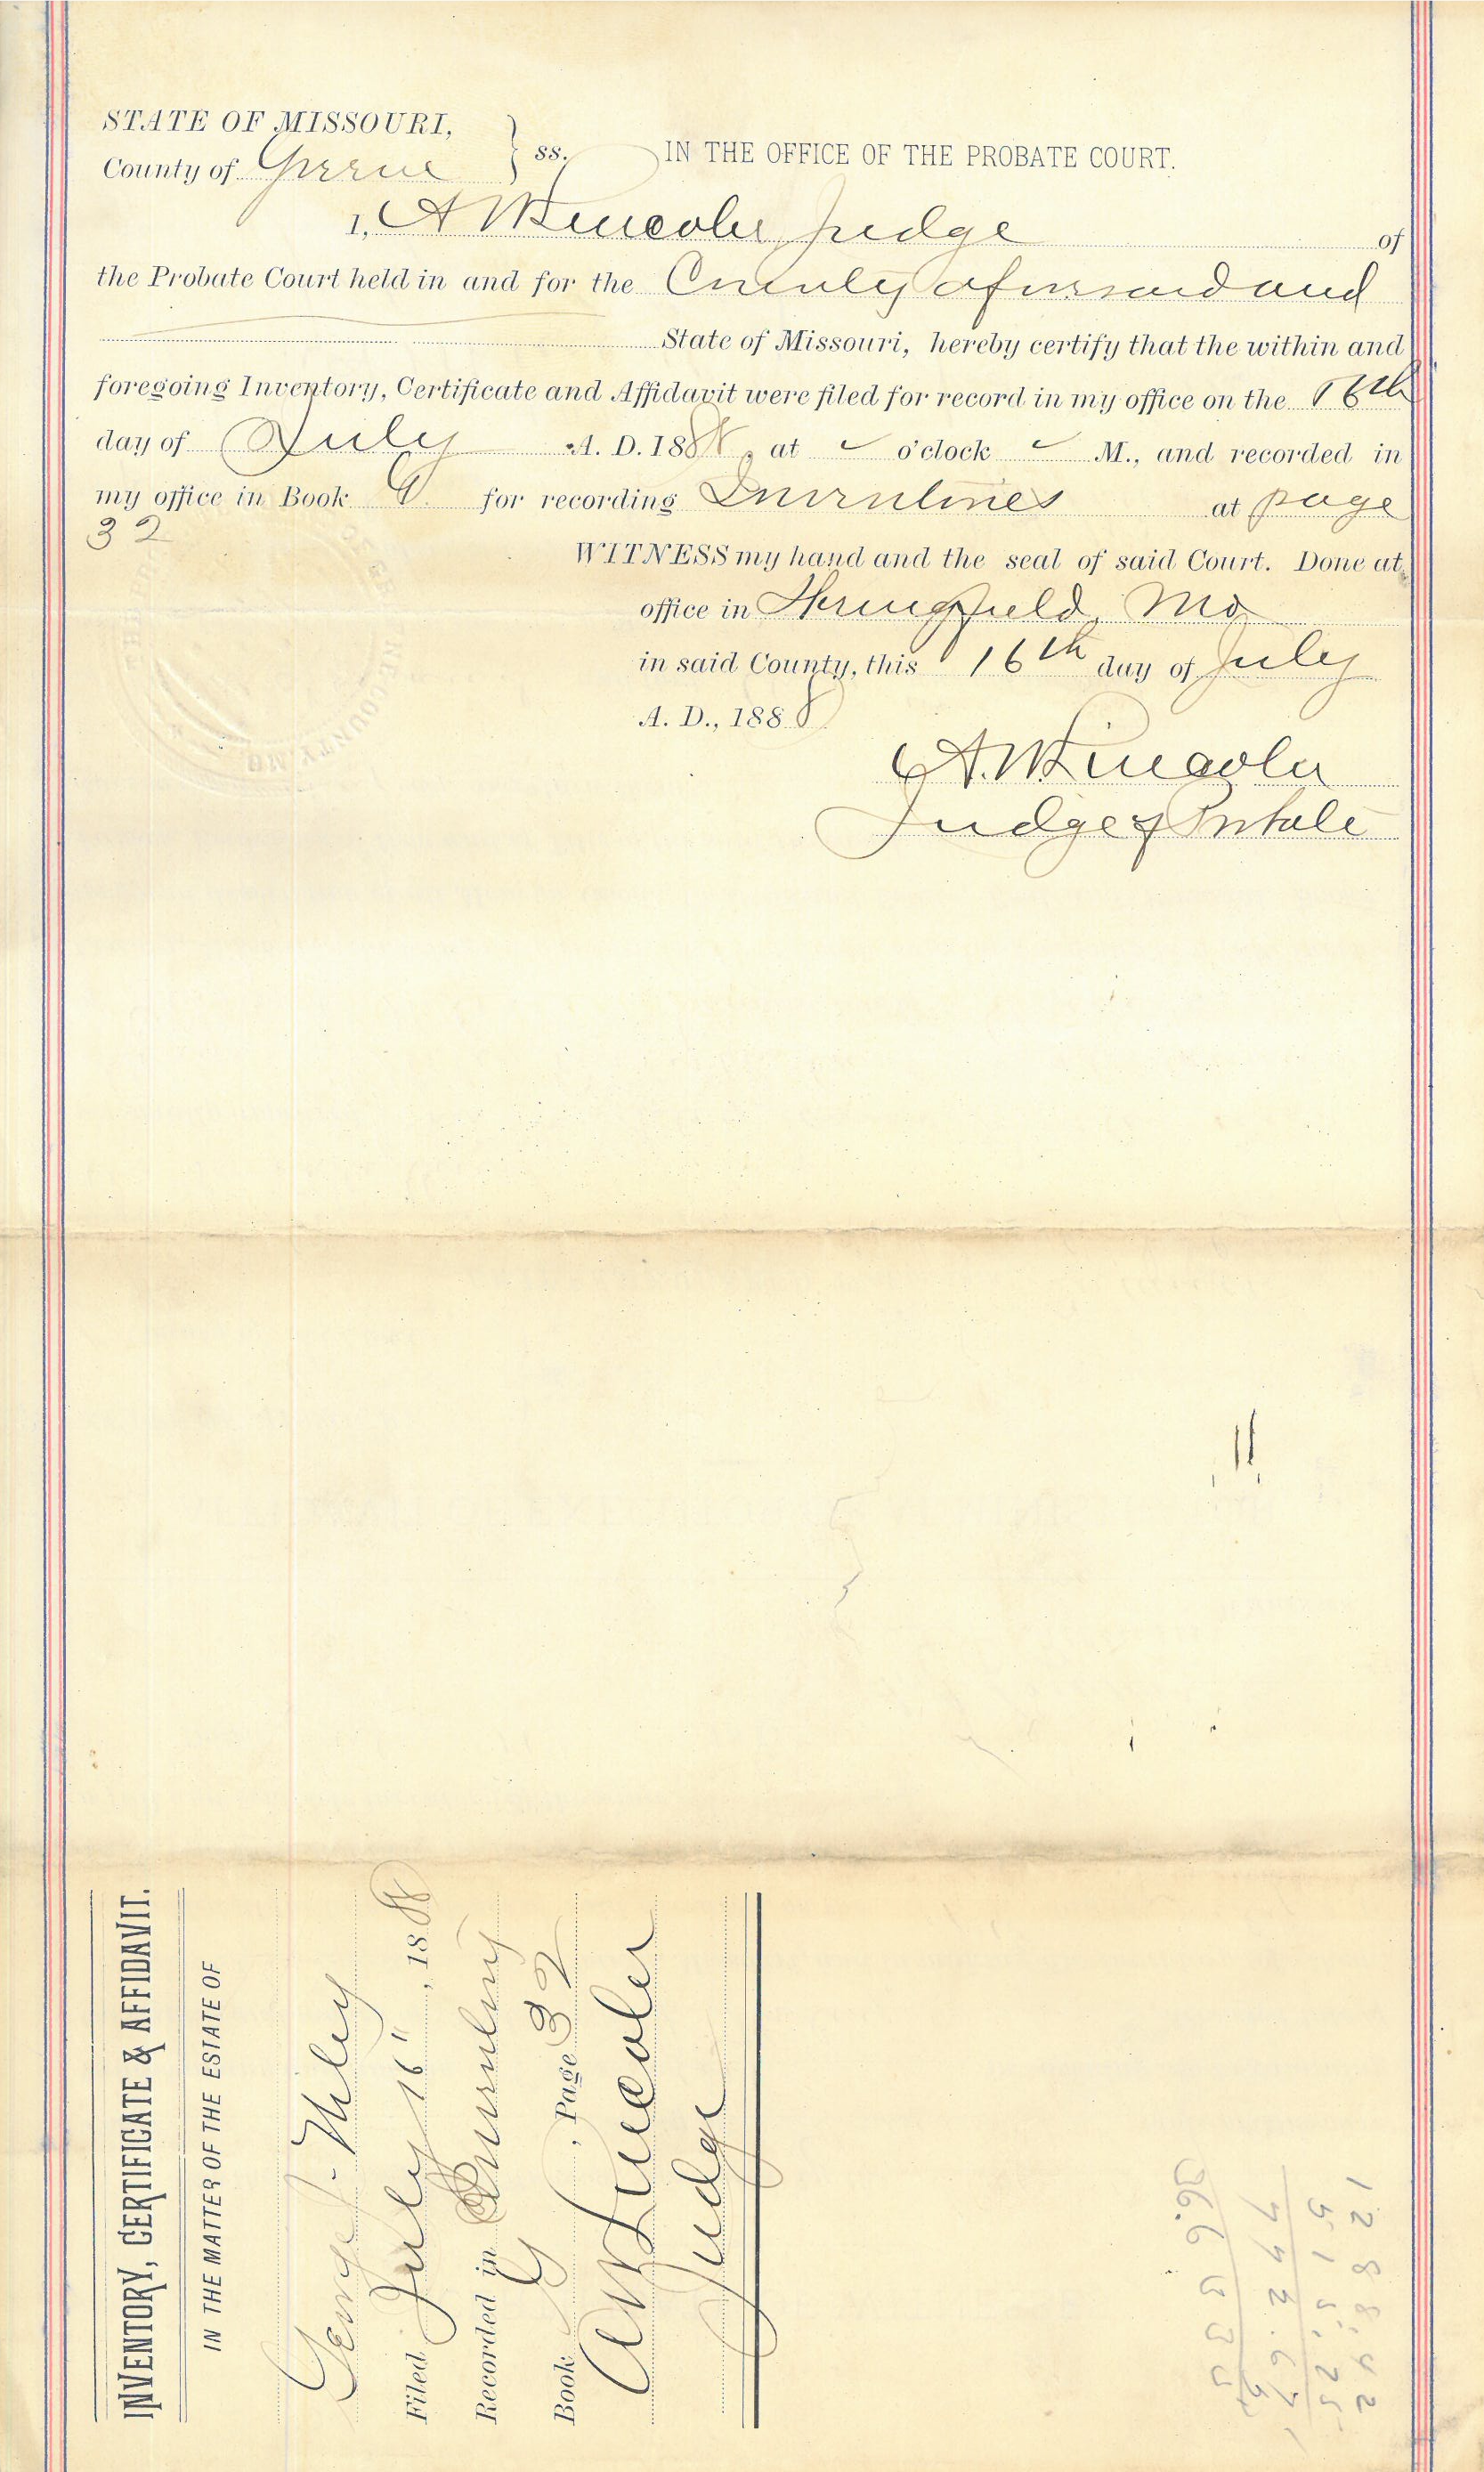 STATE OF MISSOURI,
County of Greene } ss. IN THE OFFICE OF THE PROBATE COURT.
I, A W Lincoln Judge of
the Probate Court held in and for the County aforesaid and
State of Missouri, hereby certify that the within and
foregoing Inventory, Certificate and Affidavit were filed for record in my office on the 16th
day of July A. D. 1888, at o'clock M., and recorded in
my office in Book for recording Inventories at page
32
WITNESS my hand and the seal of said Court. Done at
office in Springfield, Mo
in said County, this 16th day of July
A. D., 1888
A. W. Lincoln
Judge of Probate
INVENTORY, CERTIFICATE & AFFIDAVIT.
IN THE MATTER OF THE ESTATE OF
George
Filed July 16", 1888
Recorded in Inventory
Book , Page 32
A W Lincoln
Judge